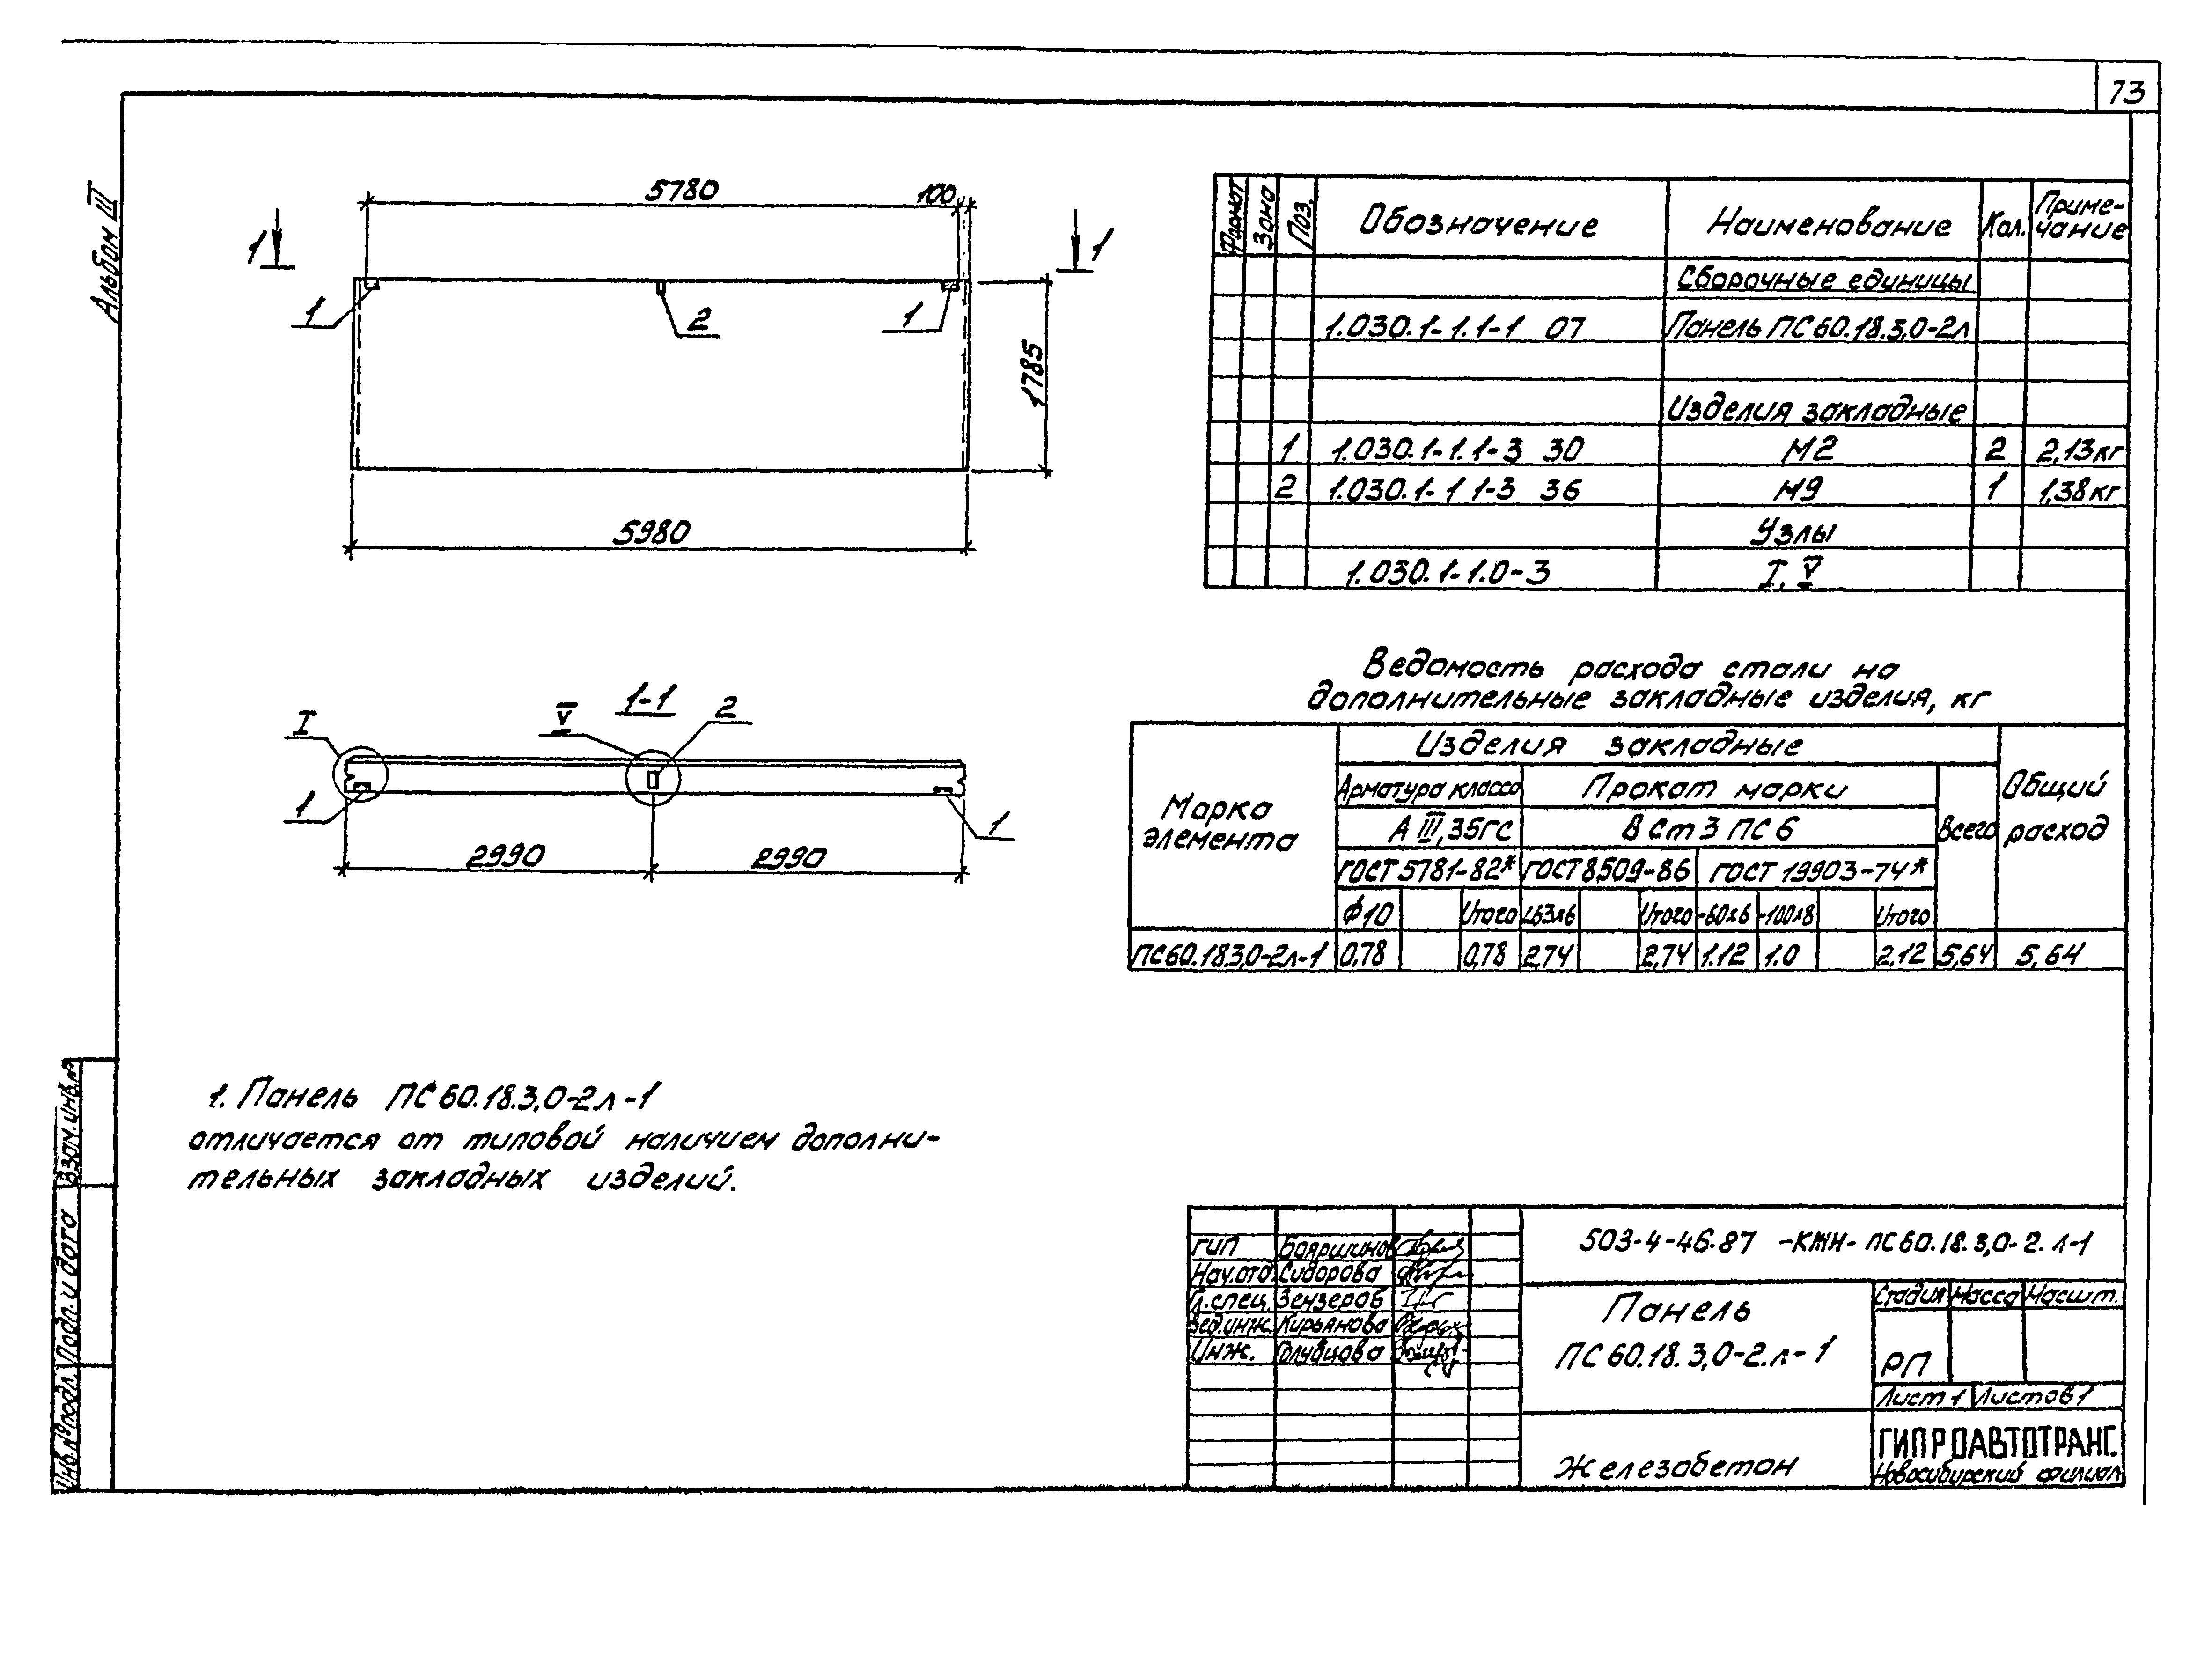 73
Альбом III
5780
100
1
1
1
2
1
1785
5980
1-1
I
V
2
1
1
2990
2990
1. Панель ПС60.18.3,0-2л-1
отличается от типовой наличием дополни-
тельных закладных изделий.
Формат Зона Поз. Обозначение Наименование Кол. Приме-
чание
Сборочные единицы
1.030.1-1.1-1 07 Панель ПС60.18.3,0-2л
Изделия закладные
1 1.030.1-1.1-3 30 М2 2 2,13кг
2 1.030.1-1 1-3 36 М9 1 1,38кг
Узлы
1.030.1-1.0-3 I, V
Ведомость расхода стали на
дополнительные закладные изделия, кг
Марка
элемента
Изделия закладные
Общий
расход
Арматура класса Прокат марки Всего
А III, 35ГС ВСт3ПС6
ГОСТ 5781-82* ГОСТ 8509-86 ГОСТ 19903-74*
Ф10 Итого L63х6 Итого -60х6 -100х8 Итого
ПС60.18.3,0-2л-1 0,78 0,78 2,74 2,74 1.12 1.0 2,12 5,64 5,64
503-4-46.87 -КЖН- ПС60.18.3,0-2.л-1
ГИП Бояршинов
Нач.отд. Сидорова
Гл.спец. Зензеров
Вед.инж. Кирьянова
Инж. Голубцова
Панель
ПС60.18.3,0-2.л-1
Стадия Масса Масшт.
РП
Лист 1 Листов 1
Железобетон
ГИПРОАВТОТРАНС
Новосибирский филиал
Взам.инв.№
Подп. и дата
Инв.№ подл.